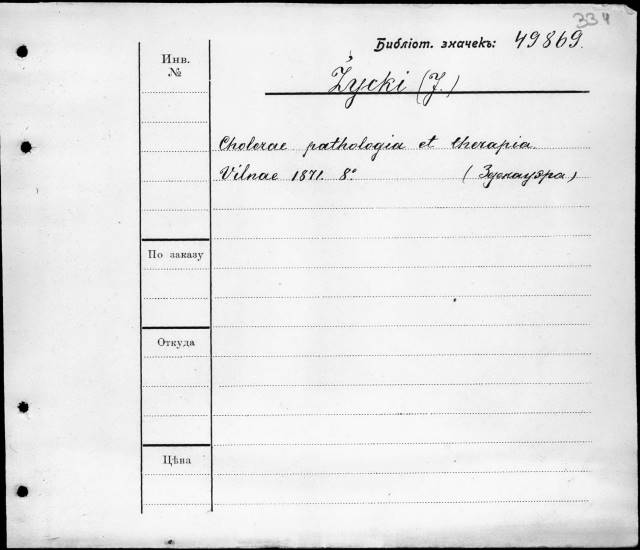 334
Библіот. значекъ: 49869.
Инв.
№
Życki (J.)
Cholerae pathologia et therapia.
Vilnae 1871. 8º (Здекауэра)
По заказу
Откуда
Цѣна